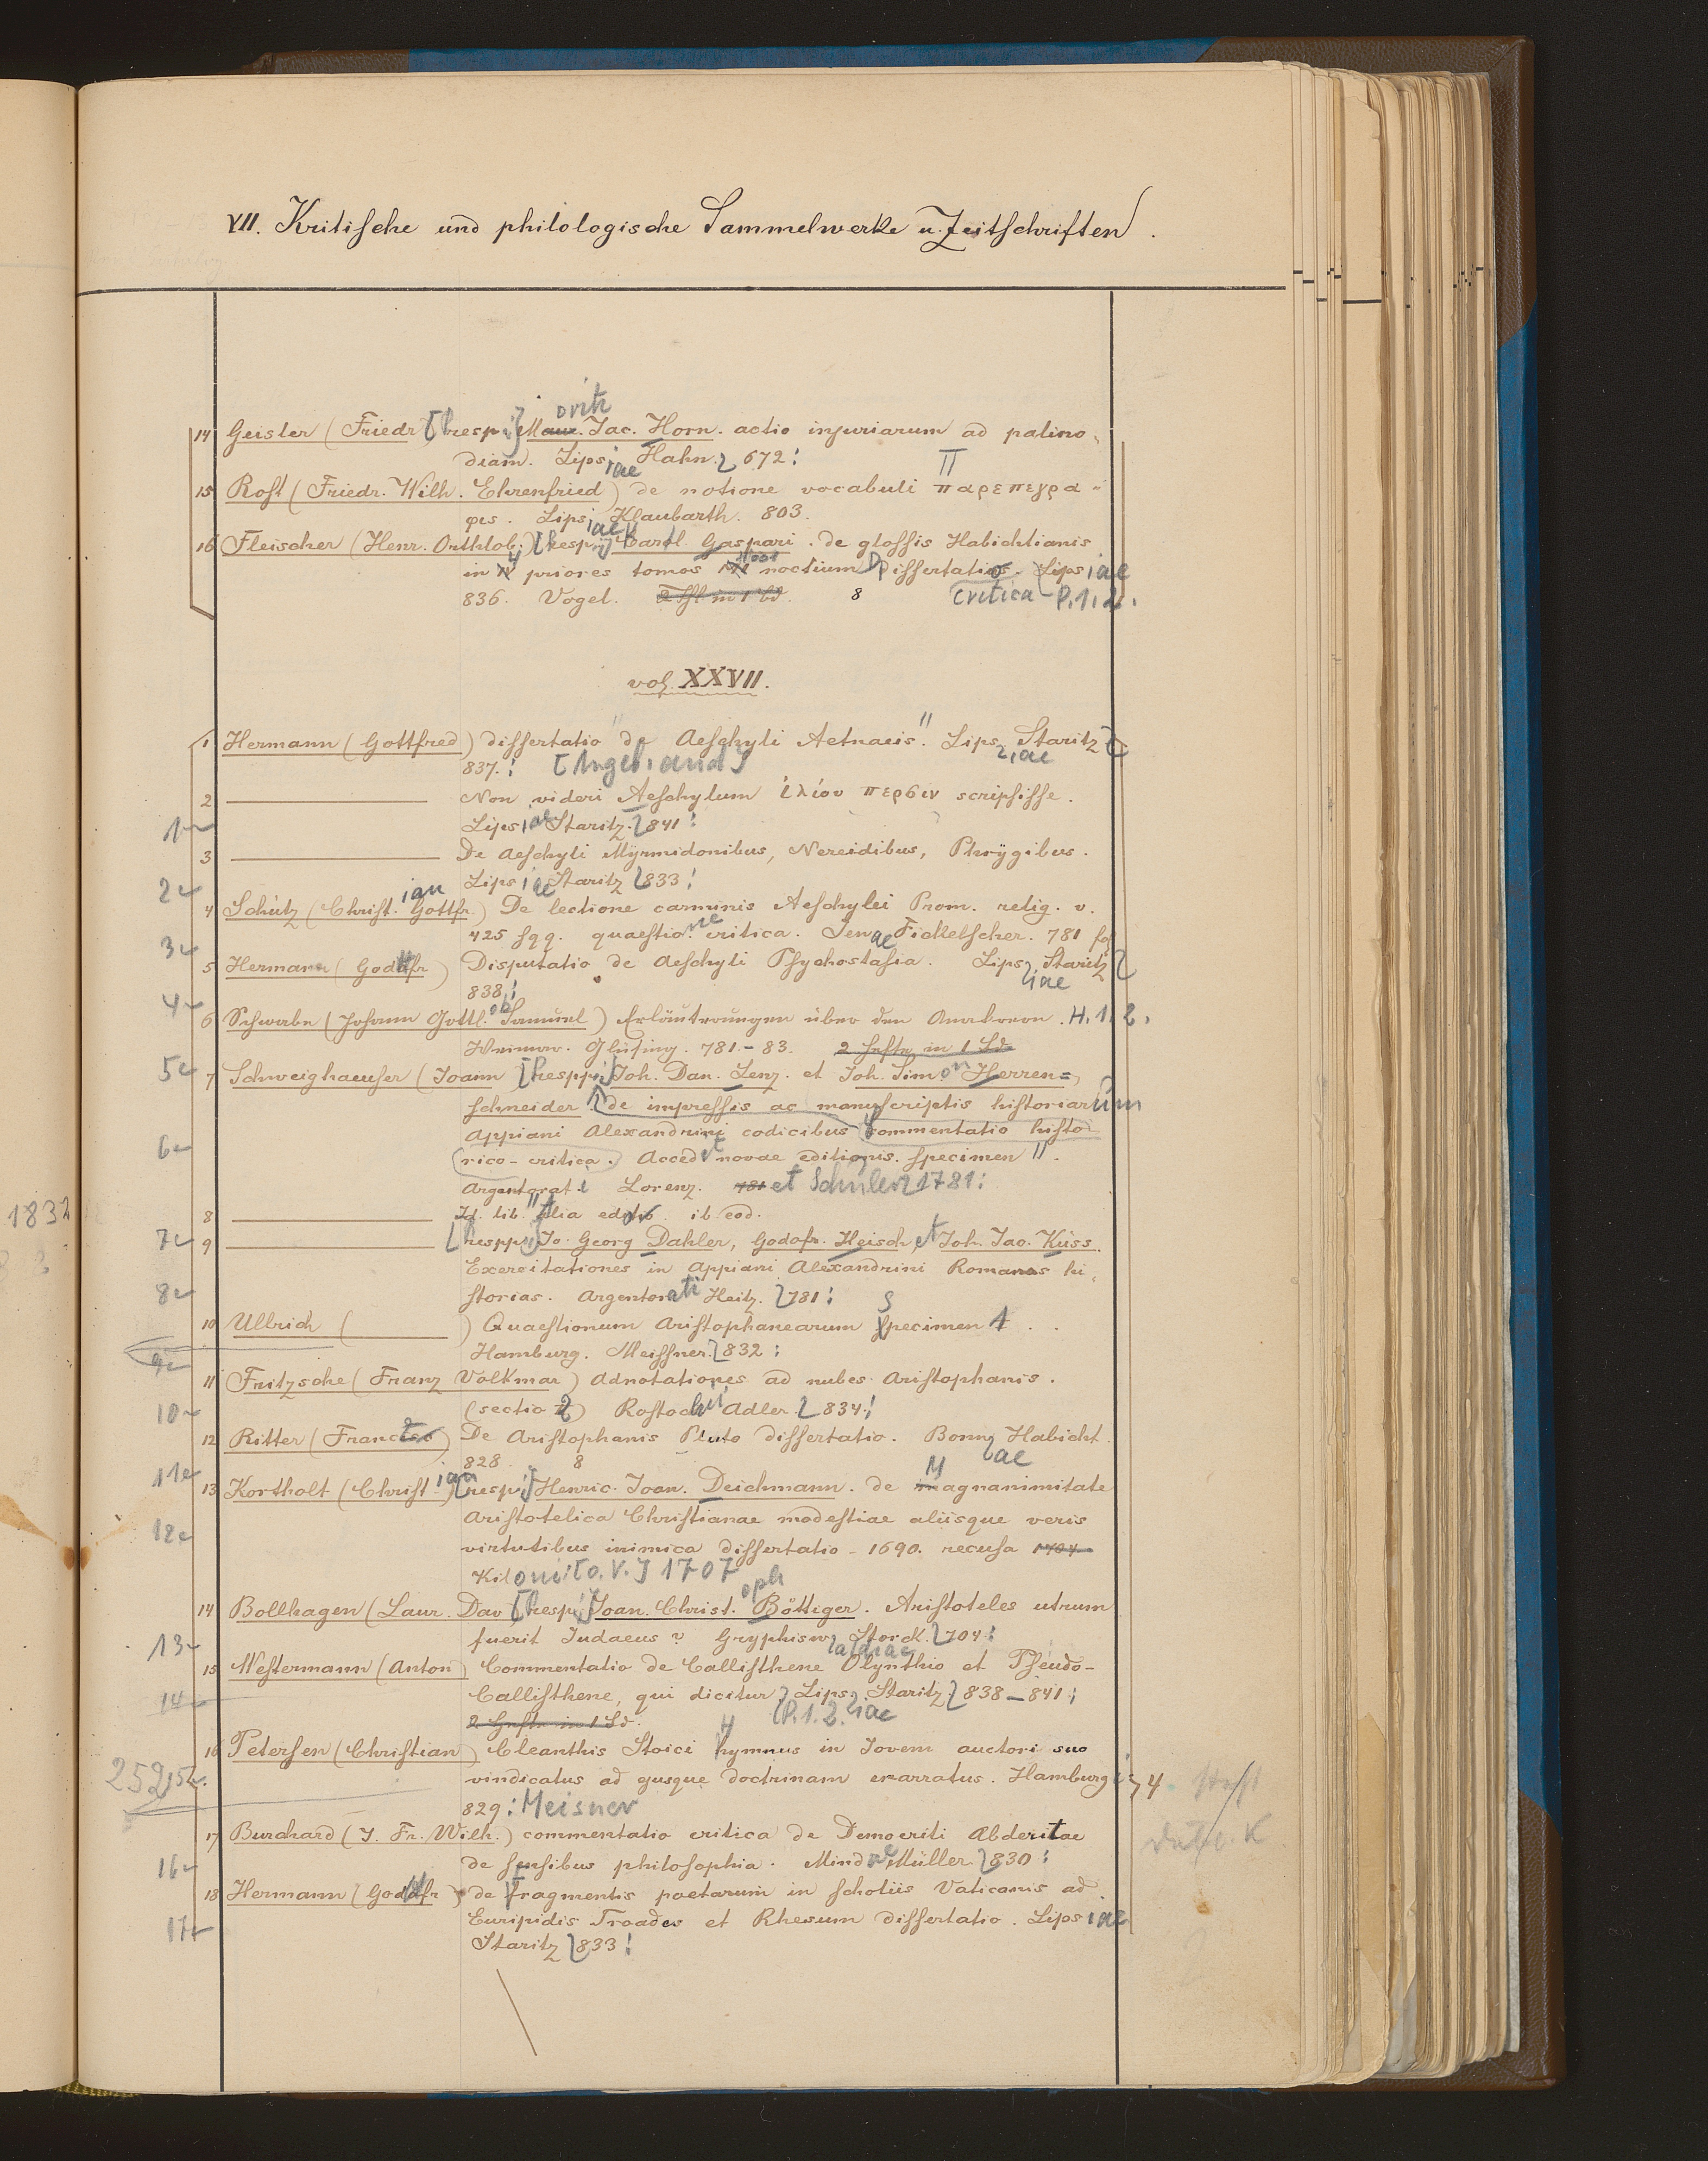 VII. Kritische und philologische Sammelwerke u. Zeitschriften.
14 Geisler (Friedr [resp.] Mauritz Jac. Horn. actio injuriarum ad palino-
diam. Lipsiae Hahn. 672.
15 Rost (Friedr. Wilh. Ehrenfried) de notione vocabuli παρεπεγρα-
φις. Lipsiae Klaubarth. 803.
16 Fleischer (Henr. Orthlob.) [resp.] Carl Gaspari. de glossis Habichtianis
in IV priores tomos MI noctium Dissertatio Lipsiae
836. Vogel. 8 critica P. 1. 2.
vol. XXVII.
1 Hermann (Gottfred) dissertatio "de Aeschyli Aetnaeis". Lipsiae Staritz
837.
2 Non videri Aeschylum ἰλίου περσιν scripsisse.
1 Lipsiae Staritz. 841
3 De Aeschyli Myrmidonibus, Nereidibus, Phrygibus.
2 Lipsiae Staritz 833
4 Schütz (Christian Gottfr.) De lectione carminis Aeschylei Prom. relig. v.
425 sqq. quaestione critica. Jenae Fickelscher. 781 fol
3
5 Hermann (Godofr) Disputatio de Aeschyli Psychostasia. Lipsiae Staritz
838
4
6 Schwabe (Johann Gottlob Samuel) Erläuterungen über den Anakreon. H. 1. 2.
Weimar. Glüsing. 781.-83. 2 Hefte in 1 Bd.
5
7 Schweighaeuser (Joann [respp.] Joh. Dan. Lenz. et Joh. Simon Herren=
schneider de impressis ac manuscriptis historiarum
Appiani Alexandrini codicibus Commentatio histo
6
rico-critica. Accedit novae editionis. specimen".
Argentorati Lorenz. 781 et Schuler 1781
8 Id. lib. alia editio ib. eod.
7
9 [respp.] Jo. Georg Dahler, Godofr. Heisch, et Joh. Jac. Küss.
Exercitationes in Appiani Alexandrini Romanas hi-
8 storias. Argentorati Heitz. 781
10 Ullrich ( ) Quaestionum Aristophanearum Specimen 1
Hamburg. Meissner. 832
9
11 Fritzsche (Franz Volkmar) Adnotationes ad nubes Aristophanis.
10 (sectio 2) Rostochii Adler. 834.
12 Ritter (Franc) De Aristophanis Pluto dissertatio. Bonnae Habicht
828. 8
11
13 Kortholt (Christian) [resp.] Henric. Joan. Deichmann. de Magnanimitate
Aristotelica Christianae modestiae aliisque veris
12
virtutibus inimica dissertatio - 1690. recusa 1704
Kiloni [o. V.] 1707
14 Bollhagen (Laur. Dav [resp.] Joan. Christoph Böttiger. Aristoteles utrum
13 fuerit Judaeus? Gryphiswaldiae Storck. 704
15 Westermann (Anton) Commentatio de Callisthene Olynthio et Pseudo-
14 Callisthene, qui dicitur, Lipsiae Staritz 838-841
2 Hefte in 1 Bd. P. 1. 2.
16 Petersen (Christian) Cleanthis Stoici Hymnus in Jovem auctori suo
252 15 vindicatus ad ejusque doctrinam enarratus. Hamburgi 4
829. Meisner
17 Burchard (J. Fr. Wilh.) commentatio critica de Democriti Abderitae
16 de sensibus philosophia. Mindae Müller 830
18 Hermann (Godofr) de Fragmentis poetarum in scholiis Vaticanis ad
17 Euripidis Troades et Rhesum dissertatio. Lipsiae
Staritz 833
1832